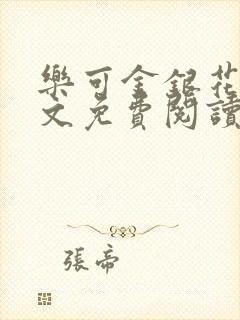 樂可金銀花
文免費閱讀
張帝